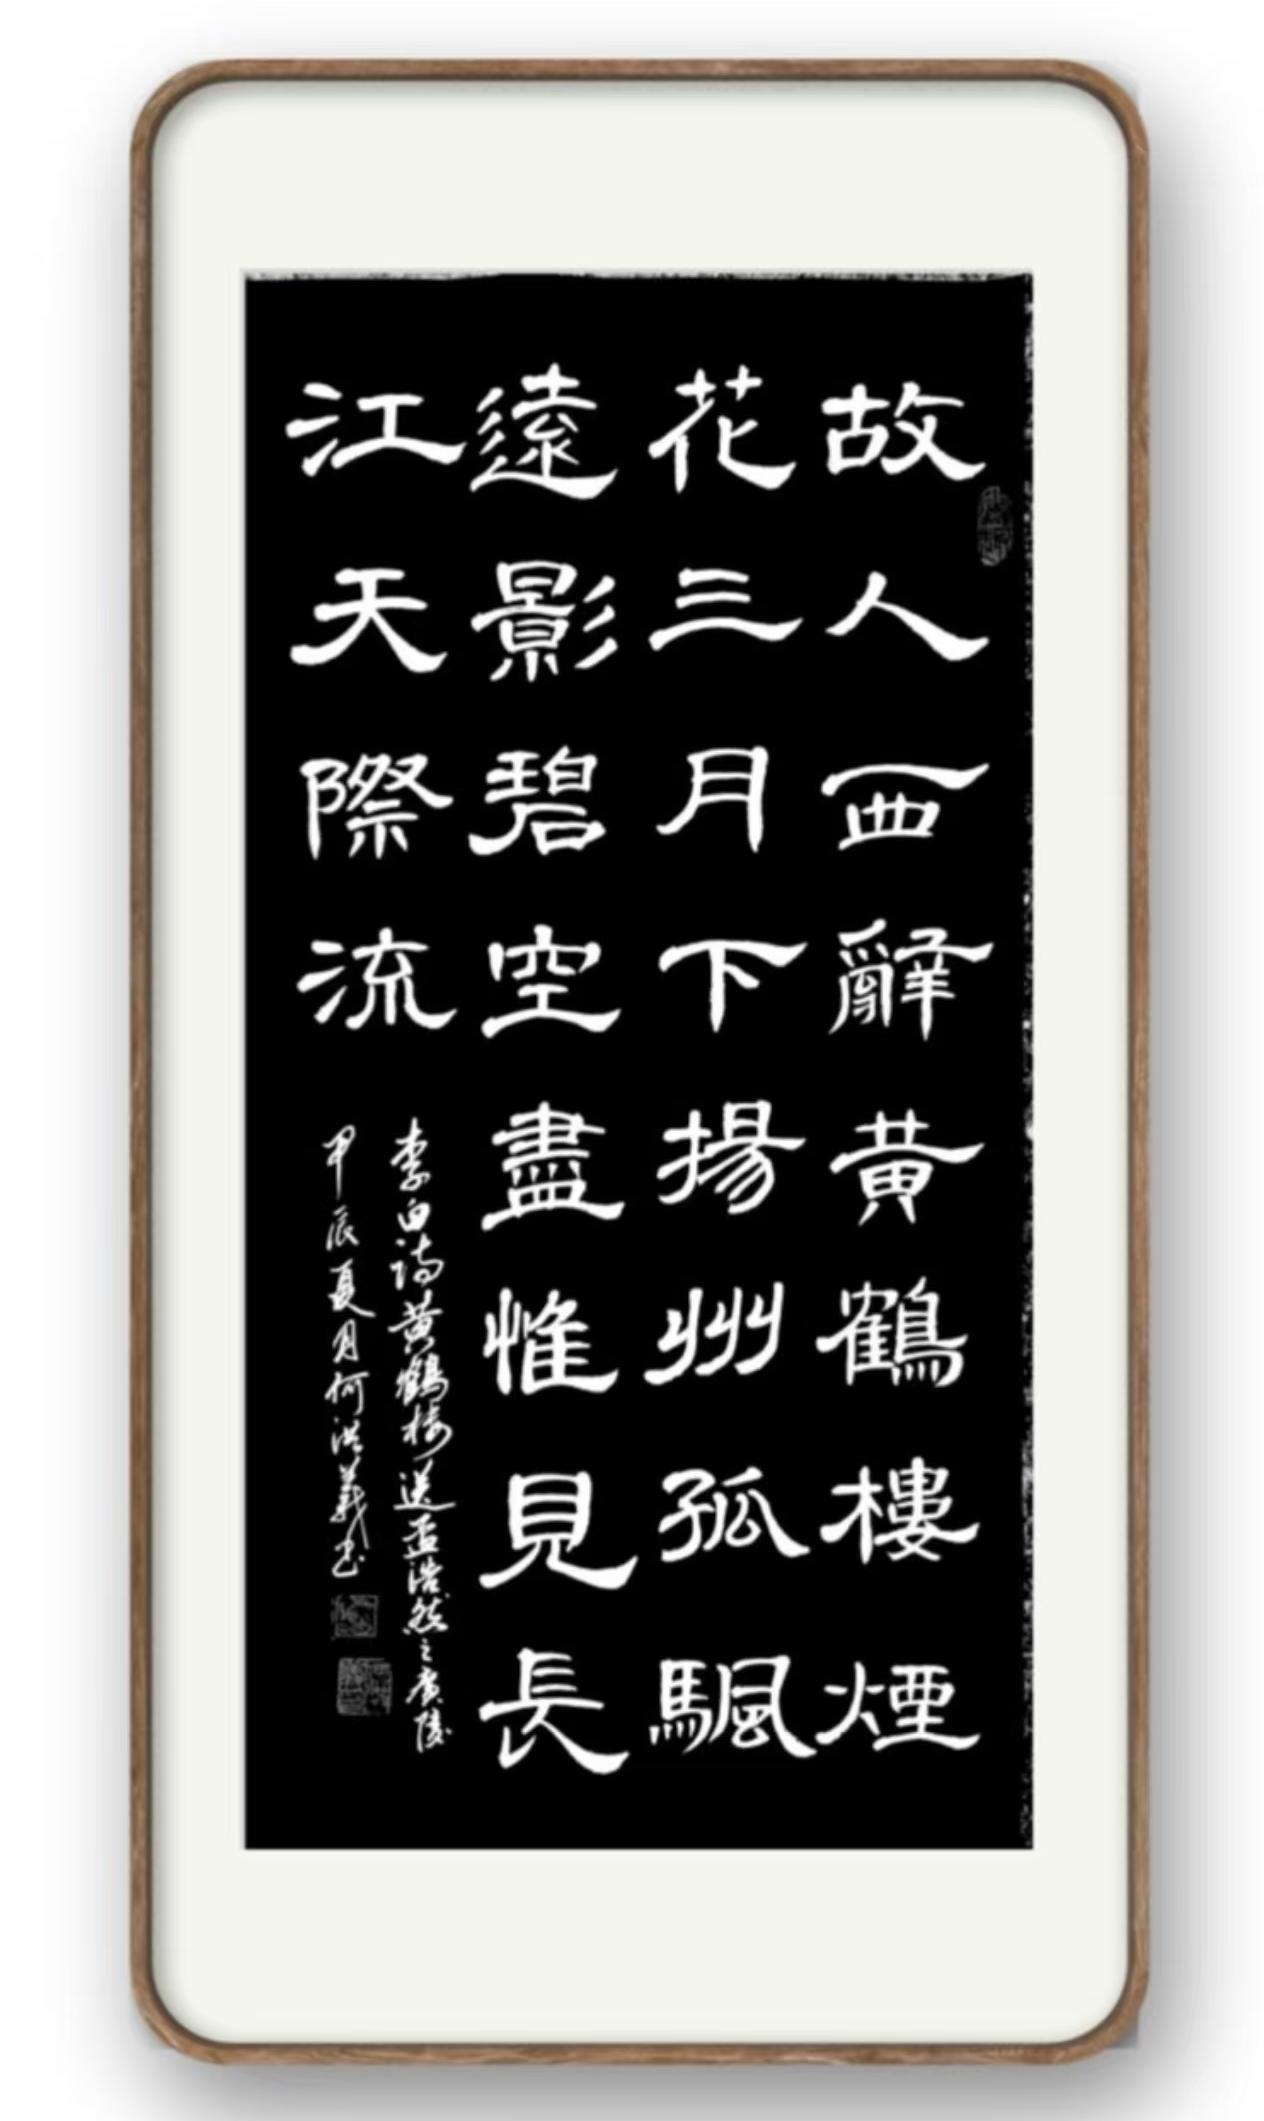 故人西辭黄鶴樓煙
花三月下揚州孤颿
遠影碧空盡惟見長
江天際流
李白詩黄鶴樓送孟浩然之廣陵
甲辰夏月何洪義书